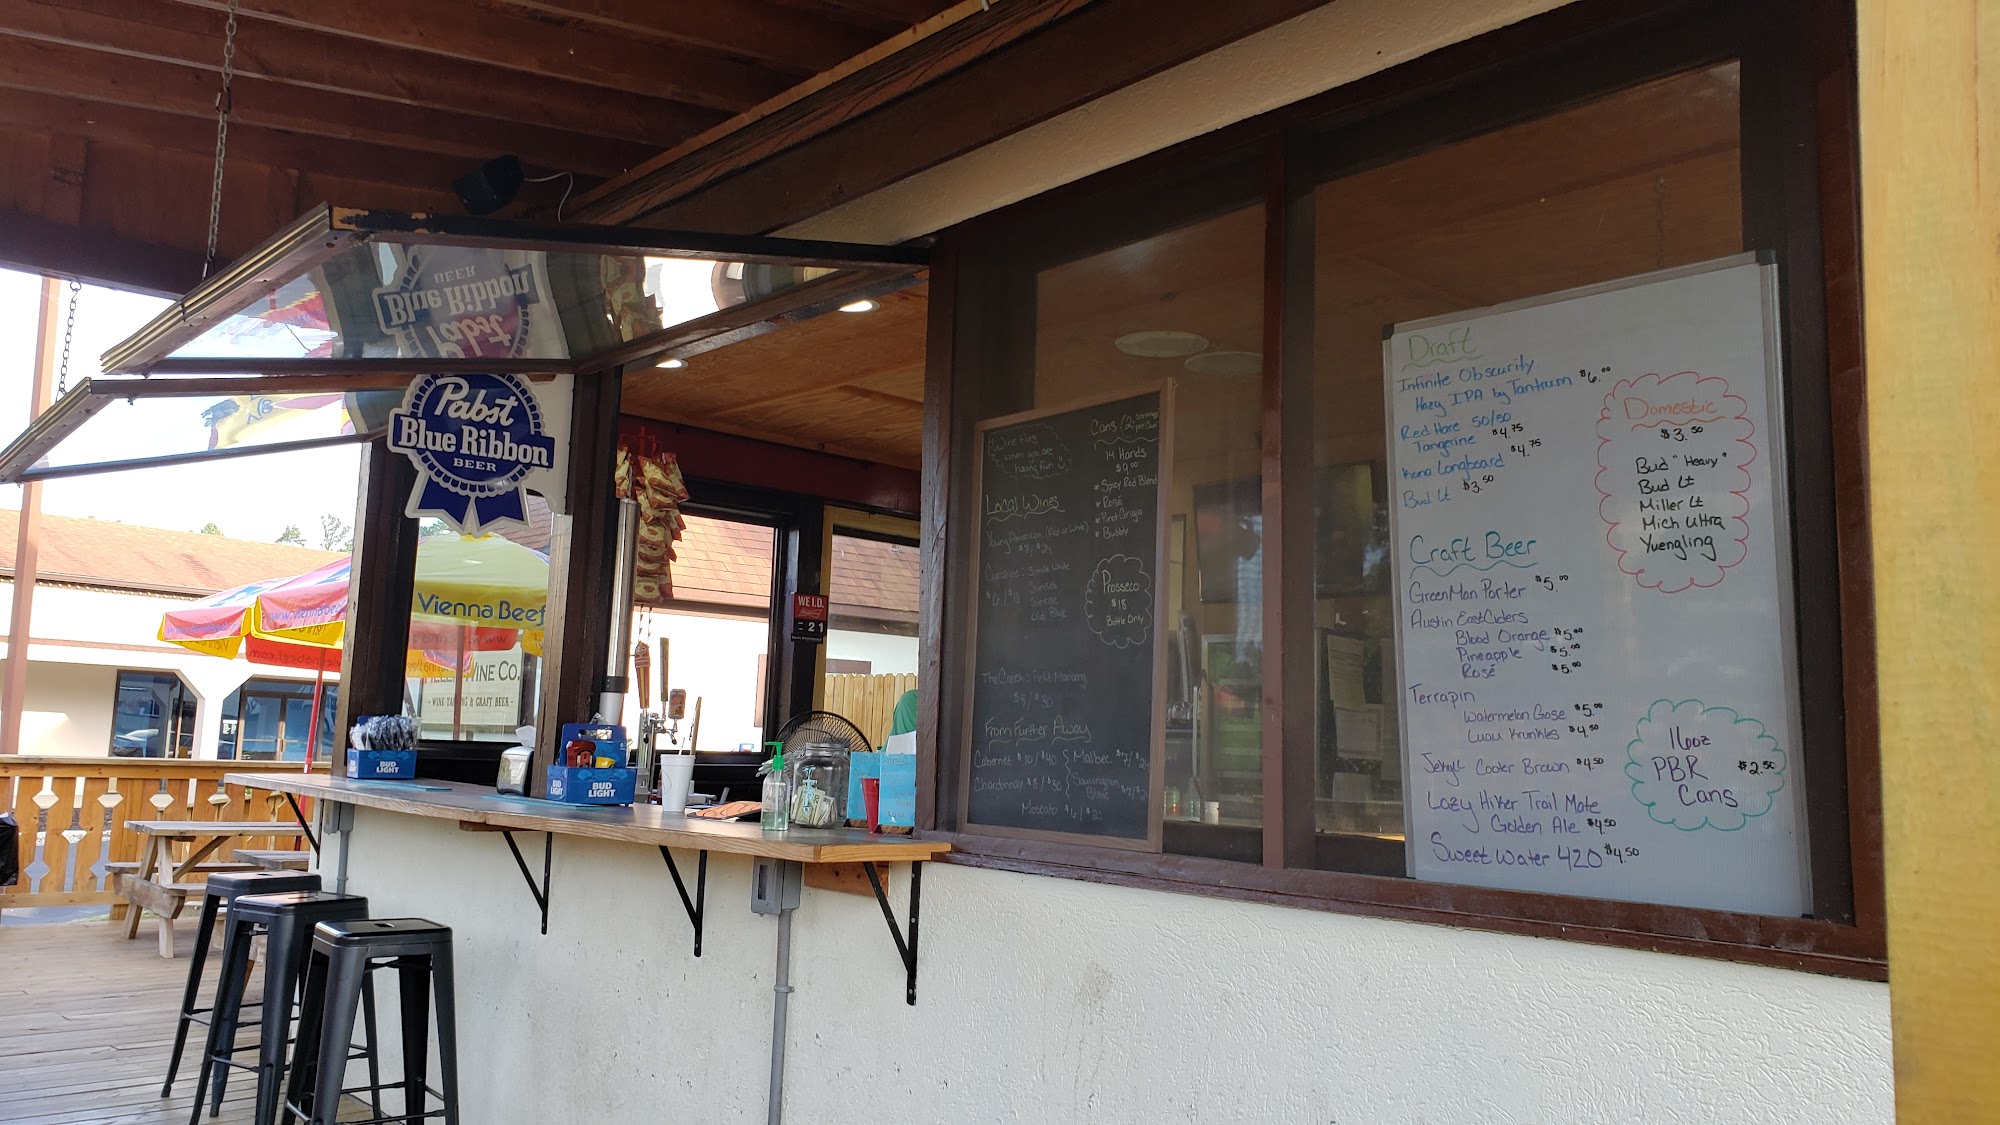 Pabst
Blue Ribbon
BEER
Pabst
Blue Ribbon
BEER
Vienna Beef
WINE CO.
- WINE TASTING & CRAFT BEER -
WE I.D.
21
BUD LIGHT
BUD LIGHT
BUD LIGHT
Wine flies
when you are
having fun
Local Wines
Young American (Red or White)
$7/$24
Simple White
Sunrise
Old Blue
The Creek: Petit Manseng
$8/$30
From Further Away
Cabernet $10/$40
Chardonnay $8/$30
Malbec $7/
Sauvignon
Blanc $7/
Moscato $6/$21
Cans (2 servings
per can)
14 Hands
$9.00
Spicy Red Blend
Rosé
Pinot Grigio
Bubbly
Prosseco
$18
Bottle Only
Draft
Infinite Obscurity
Hazy IPA by Tantrum $6.00
Red Hare 50/50
Tangerine $4.75
Kona Longboard $4.75
Bud Lt $3.50
Craft Beer
GreenMan Porter $5.00
Austin EastCiders
Blood Orange $5.00
Pineapple $5.00
Rosé $5.00
Terrapin
Watermelon Gose $5.00
Luau Krunkles $4.50
Jekyll Cooter Brown $4.50
Lazy Hiker Trail Mate
Golden Ale $4.50
Sweet Water 420 $4.50
Domestic
$3.50
Bud "Heavy"
Bud Lt
Miller Lt
Mich Ultra
Yuengling
16oz
PBR
Cans
$2.50